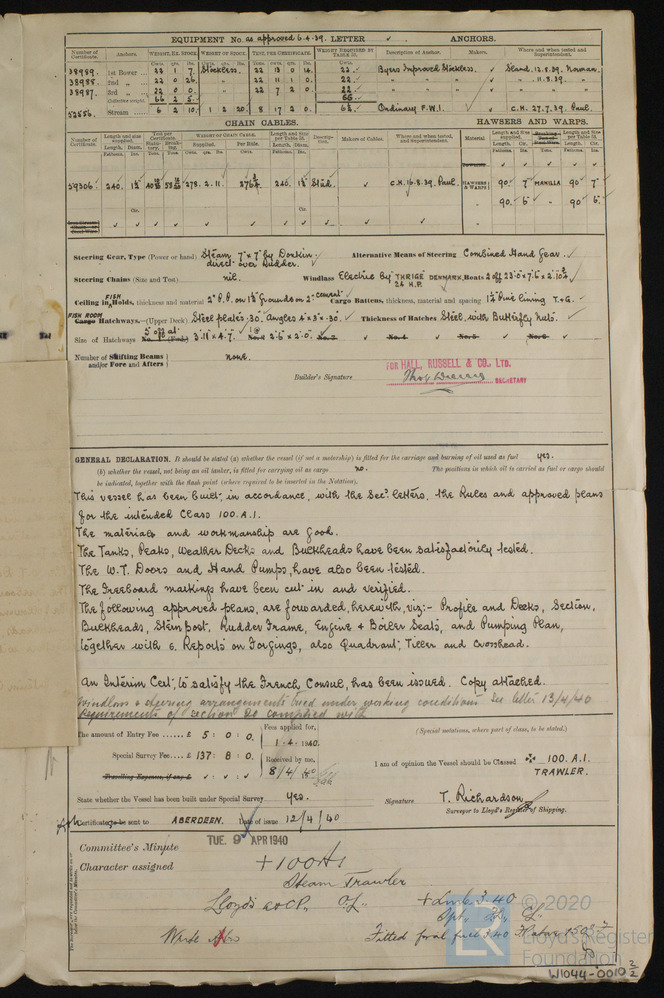 EQUIPMENT No. as approved 6.4.39. LETTER ✓ . ANCHORS.
Number of Certificate. Anchors. WEIGHT, EX. STOCK. WEIGHT OF STOCK. TEST, PER CERTIFICATE. WEIGHT REQUIRED BY TABLE 53. Description of Anchor. Makers. Where and when tested and Superintendent.
38989. 1st Bower 22 1 7. Stockless. 22 13 0 14. 22. Byers Improved Stockless. ✓ Sland. 12.8.39. Norman.
38988. 2nd „ 22 0 26. 22 11 1 0. 22. „ „ „ „ 11.8.39. „
38987. 3rd „ 22 0 0 22 7 2 0. 22. „ „ „
Collective weight. 66 2 5. 66.
52556. Stream 6 2 10. 1 2 20. 8 17 2 0. 6½. Ordinary F.W.I. ✓ C.H. 27.7.39. Paul.
CHAIN CABLES. HAWSERS AND WARPS.
Number of Certificate. Length and size supplied. Test per Certificate. WEIGHT OF CHAIN CABLE. Length and Size per Table 53. Description. Makers of Cables. Where and when tested, and Superintendent. Material. Length and Size supplied. Length and Size per Table 53.
240. 278. 2. 11. 240. Stud. ✓ C.H. 16.8.39. Paul. HAWSERS & WARPS 90. 7" MANILLA 90 7"
„ 90. 6" „ 90 6"
Steering Gear, Type (Power or hand) Steam 7" x 7" by Donkin direct over Rudder. Alternative Means of Steering Combined Hand Gear. ✓
Steering Chains (Size and Test) nil. Windlass Electric by "THRIGE" DENMARK. 24 H.P. Boats 2 off 23.0 x 7.6 x 2.10¾
Ceiling in FISH Holds, thickness and material 2" P.P. on 1½" Grounds on 2" cement ✓ Cargo Battens, thickness, material and spacing 1¼" Pine lining T.&G. ✓
FISH ROOM Cargo Hatchways.—(Upper Deck) Steel plates .30" Angles 4" x 3" x .30" ✓ Thickness of Hatches Steel, with Butterfly nuts. ✓
Size of Hatchways 5 off at 3'.11" x 4'.7". 1 @ 2'.6" x 2'.0". No. 3 ✓ No. 4 ✓ No. 5 ✓ No. 6 ✓
Number of Shifting Beams and/or Fore and Afters none.
FOR HALL, RUSSELL & CO., LTD.
Builder's Signature SECRETARY
GENERAL DECLARATION. It should be stated (a) whether the vessel (if not a motorship) is fitted for the carriage and burning of oil used as fuel yes.
(b) whether the vessel, not being an oil tanker, is fitted for carrying oil as cargo no. The positions in which oil is carried as fuel or cargo should
be indicated, together with the flash point (where required to be inserted in the Notation).
This vessel has been built, in accordance, with the Sec's letters, the Rules and approved plans
for the intended Class 100. A.I.
The materials and workmanship are Good.
The Tanks, Peaks, Weather Decks and Bulkheads have been satisfactorily tested.
The W.T. Doors and Hand Pumps, have also been tested.
The Freeboard markings have been cut in and verified.
The following approved plans, are forwarded, herewith, viz:- Profile and Decks, Section,
Bulkheads, Stern post, Rudder Frame, Engine & Boiler Seats, and Pumping Plan,
together with 6. Reports on Forgings, also Quadrant, Tiller and Crosshead.
An Interim Cert, to satisfy the French Consul, has been issued. Copy attached.
Windlass & steering arrangements tried under working conditions See letter 13/4/40
Requirements of section 20 complied with
The amount of Entry Fee £ 5 : 0 : 0. Fees applied for, 1.4.1940. (Special notations, where part of class, to be stated.)
Special Survey Fee £ 137 : 8 : 0. Received by me, 8/4/40
I am of opinion the Vessel should be Classed ✠ 100. A.I. TRAWLER.
Travelling Expenses, if any, £ ✓ : ✓ : ✓
State whether the Vessel has been built under Special Survey yes. Signature T. Richardson
Surveyor to Lloyd's Register of Shipping.
Certificate to be sent to ABERDEEN. Date of issue 12/4/40
Committee's Minute TUE. 9 APR 1940
Character assigned + 100 A1
Steam Trawler
Lloyd's A & CP. + LMC 3.40
Fitted for oil fuel 3.40 F.P. above 150°F
© 2020
Lloyd's Register
Foundation
W1044-0010 2/2